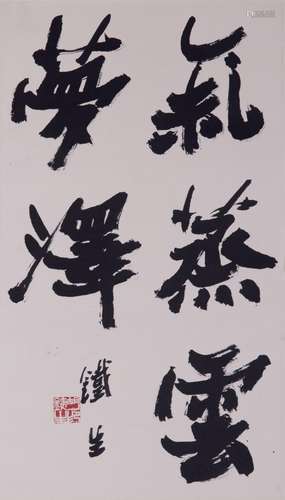 氣蒸雲
夢澤
鐵生